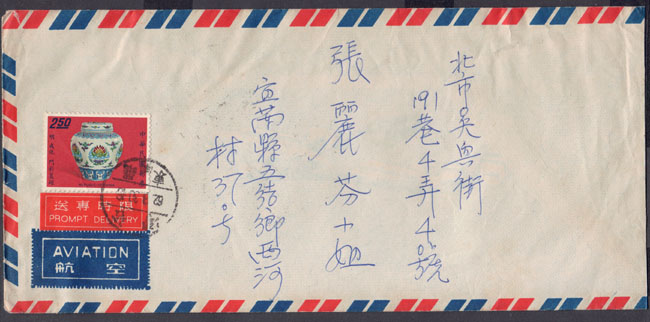 北市吳興街
191巷4弄4号號
張麗芬小姐
宜蘭縣五結鄉西河
村37号
2.50
中華民國
限時專送
PROMPT DELIVERY
AVIATION
航空